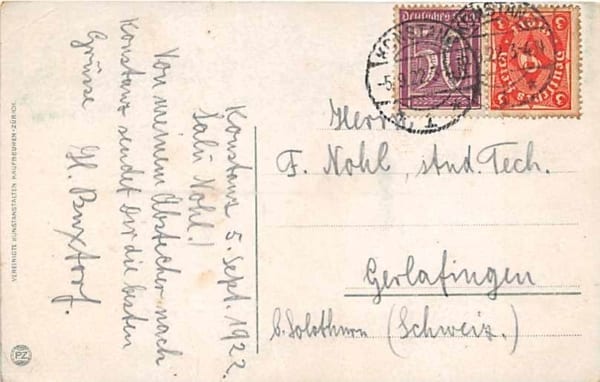 Konstanz 5. Sept. 1922.
Sali Nohl!
Von meinem Abstecher nach
Konstanz sendet Dir die besten
Grüsse
H. Buxtorf.
VEREINIGTE KUNSTANSTALTEN KAUFBEUREN-ZÜRICH.
PZ
Deutsches Reich
50
KONSTANZ
-5.9.22
3-4 N
3
3
Deutsches Reich
Herrn
F. Nohl, stud. Tech.
Gerlafingen
b. Solothurn (Schweiz.)